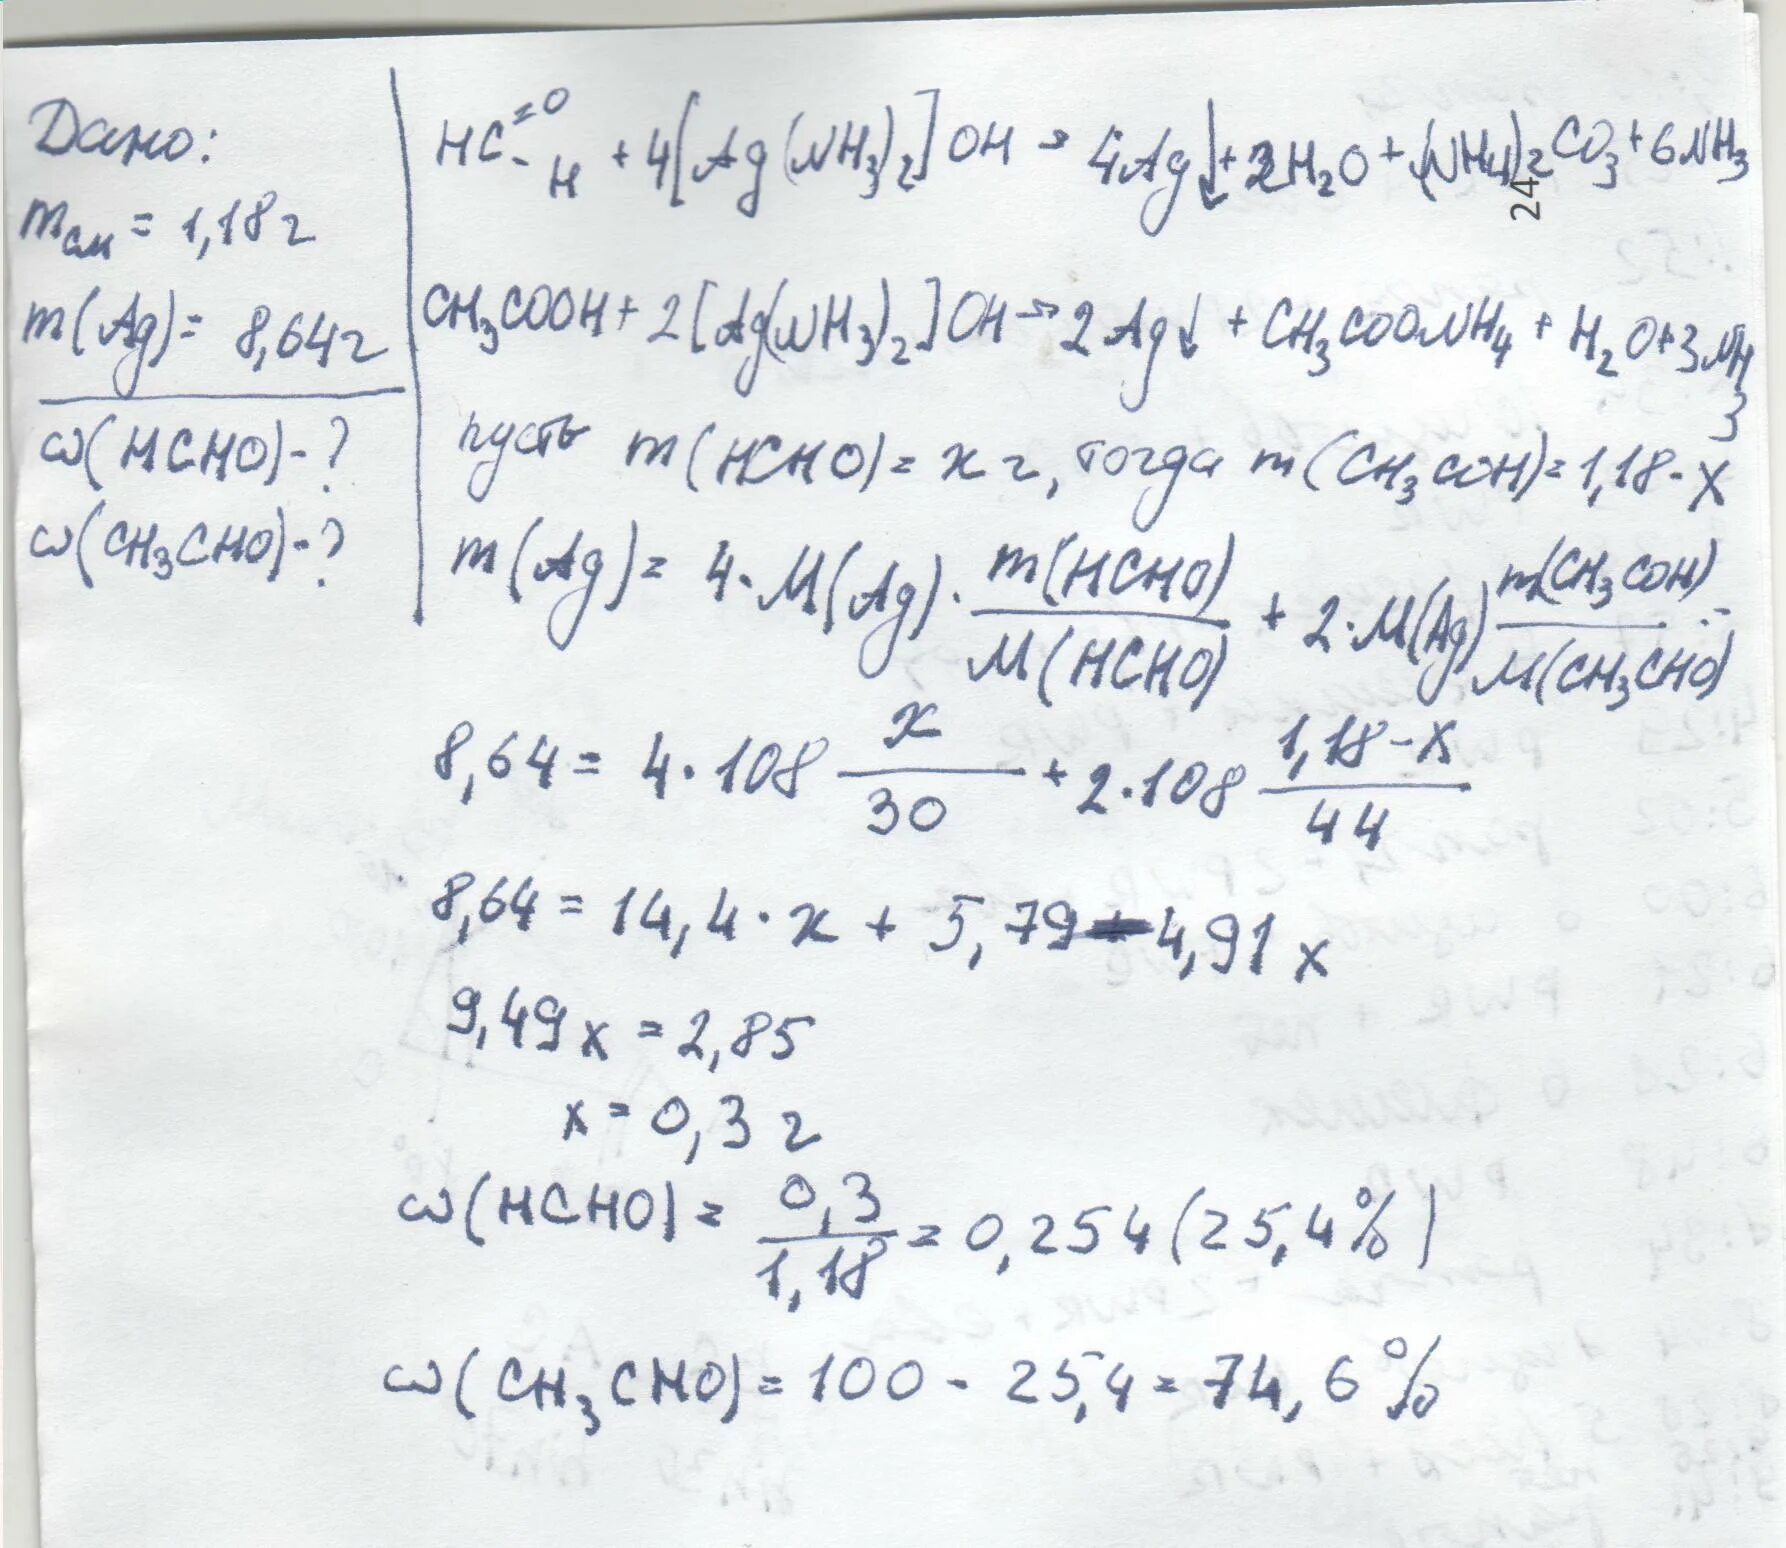 Дано:
mсм = 1,18 г
m(Ag) = 8,64 г
ω(HCHO) - ?
ω(CH₃CHO) - ?
HC=O-H + 4[Ag(NH₃)₂]OH → 4Ag↓ + 2H₂O + (NH₄)₂CO₃ + 6NH₃
24
CH₃COOH + 2[Ag(NH₃)₂]OH → 2Ag↓ + CH₃COONH₄ + H₂O + 3NH₃
пусть m(HCHO) = x г, тогда m(CH₃COH) = 1,18 - x
m(Ag) = 4·M(Ag)·m(HCHO)/M(HCHO) + 2·M(Ag) m(CH₃COH)/M(CH₃CHO)
8,64 = 4·108 x/30 + 2·108 1,18-x/44
8,64 = 14,4·x + 5,79 - 4,91x
9,49x = 2,85
x = 0,3 г
ω(HCHO) = 0,3/1,18 = 0,254 (25,4%)
ω(CH₃CHO) = 100 - 25,4 = 74,6%